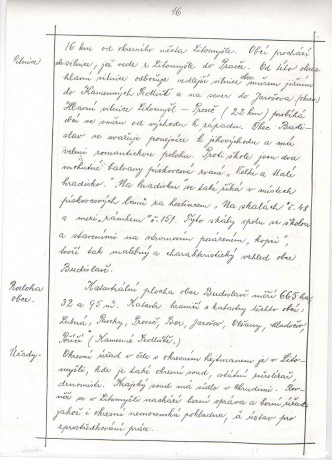 16
16 km od okresního města Litomyšle. Obcí prochází
Silnice
silnice, jež vede z Litomyšle do Proseče. Od této
hlavní silnice odbočuje vedlejší silnice směrem jižním
do Kamenných Sedlišť a na sever do Jarošova
Hlavní silnice Litomyšl - Proseč (22 km) probíhá
obcí ve směru od východu k západu. Obec Budi-
slav se svažuje poněkud k jihovýchodu a má
velmi romantickou polohu. Proti škole jsou dva
mohutné balvany pískovcové zvané "Velké a Malé
hradisko". "Na hradisku" se také říká v místech
pískovcových lomů za hostincem "Na skalách" č. 48
a mezi "zámkem" č. 151. Tyto skály spolu se školou
a staveními na stromovím porostlém "kopci"
tvoří tak malebný a charakteristický vzhled obce
Budislavě.
Rozloha
obce.
Katastrální plocha obce Budislavě měří 665 ha
32 a 95 m2. Katastr hraničí s katastry těchto obcí:
Lubná, Proseč, Bor, Jarošov,
Poříčí (Kamenné Sedliště).
Úřady.
Okresní úřad v čele s okresním hejtmanem je v Lito-
myšli, kde je také okresní soud, státní
Krajský soud má sídlo v Chrudimi. Rov-
něž se v Litomyšli nachází berní správa a berní úřad
jakož i okresní nemocenská pokladna, a ústav pro
zprostředkování práce.